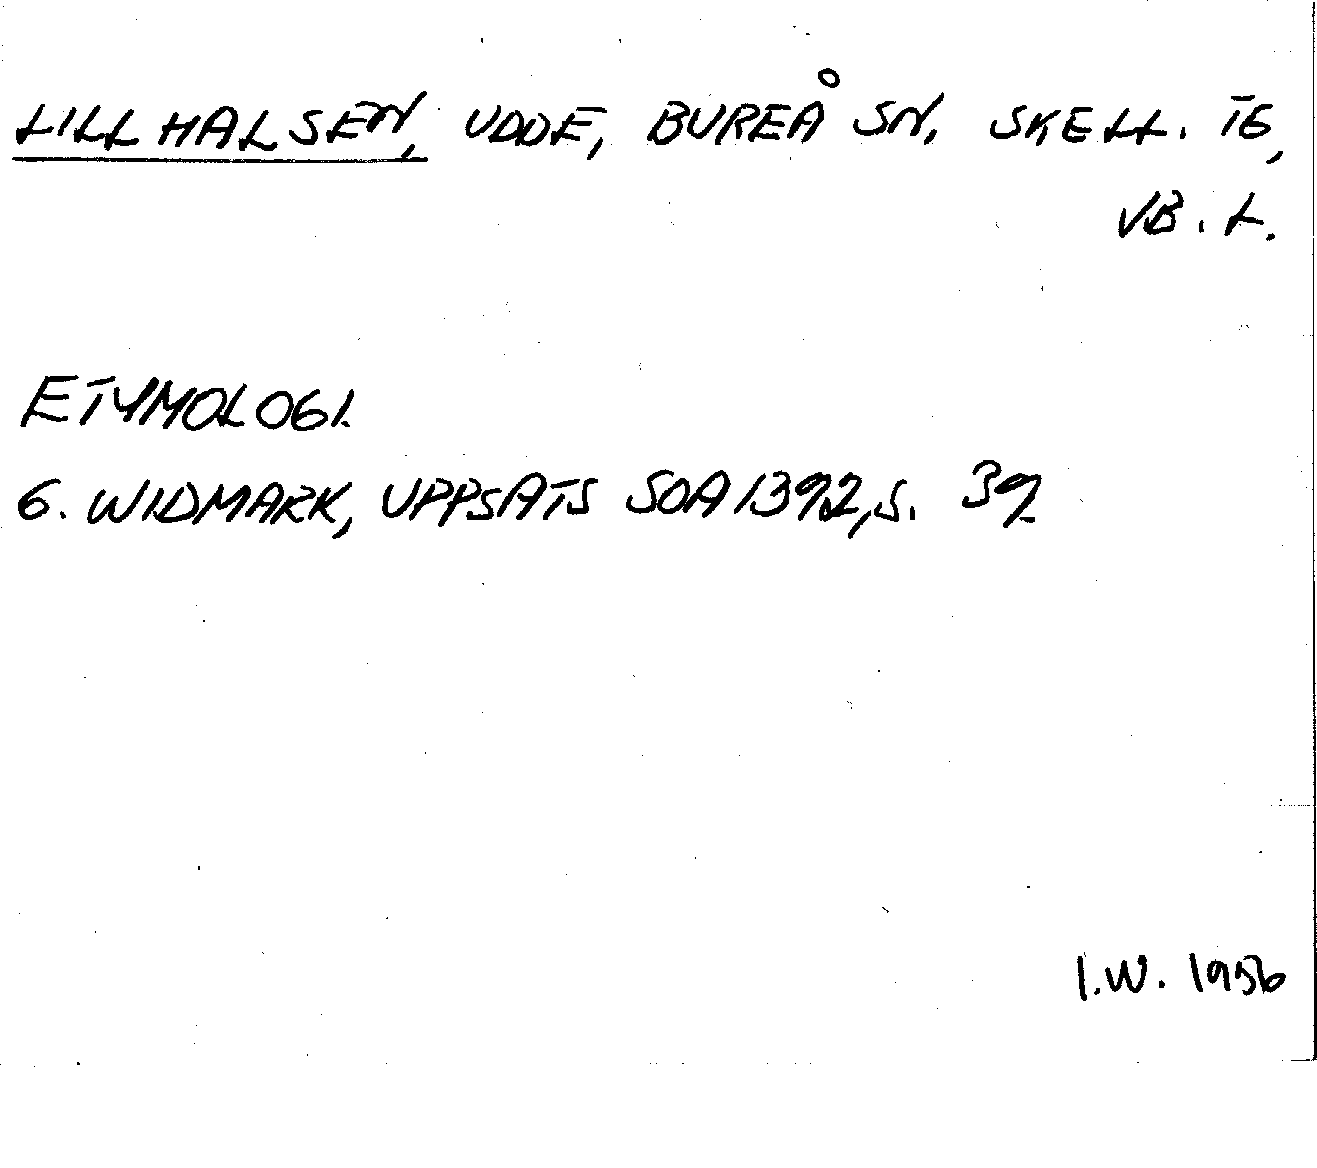 LILLHALSEN, UDDE, BUREÅ SN, SKELL. TG,
VB. L.
ETYMOLOGI.
G. WIDMARK, UPPSATS SOA 1392, S. 39
I.W. 1956